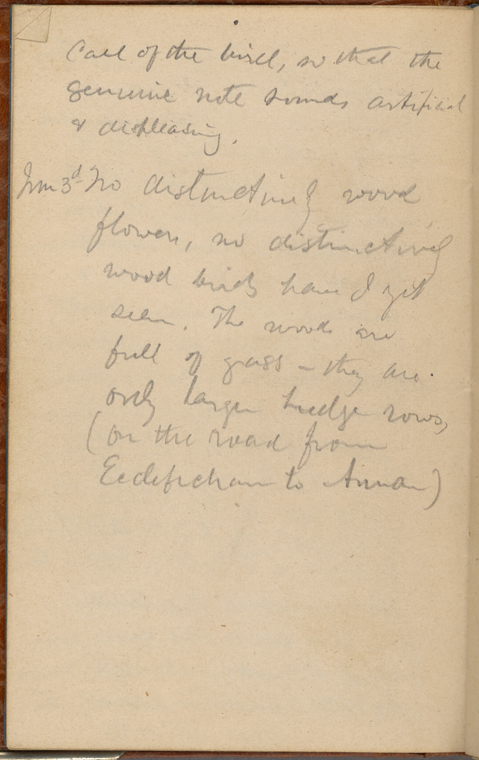 call of the bird, so that the
genuine note sounds artificial
& displeasing.
June 3d No distinctively wood
flowers, no distinctively
wood birds have I yet
seen. The woods are
full of grass - they are
only larger hedge rows,
(on the road from
Ecclefechan to Annan)